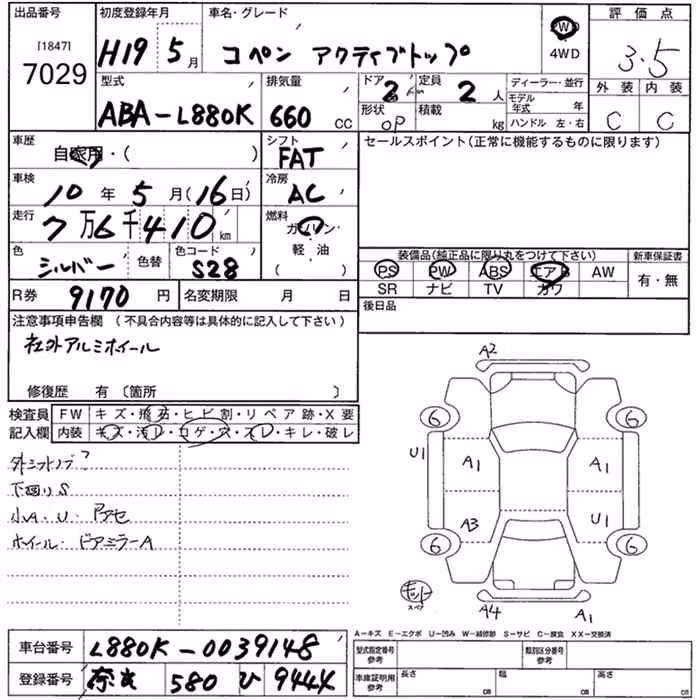 出品番号 初度登録年月 車名・グレード 評価点
[1847]
7029
H19 5月 コペン アクティブトップ 4WD 3.5
型式 排気量 ドア 定員 ディーラー・並行 外装 内装
ABA-L880K 660 CC 2 2人 モデル年式 年
形状 OP 積載 kg ハンドル 左・右 C C
車歴 自家用・( ) シフト FAT セールスポイント(正常に機能するものに限ります)
車検 10年5月(16日) 冷房 AC
走行 7万6千410km 燃料 ガソリン・軽・油 ( )
色 シルバー 色替 色コード S28
装備品(純正品に限り丸をつけて下さい) 新車保証書
PS PW ABS エアB AW 有・無
SR ナビ TV カワ
R券 9170円 名変期限 月 日 後日品
注意事項申告欄 (不具合内容等は具体的に記入して下さい)
社外アルミホイール
修復歴 有 〔箇所 〕
検査員 FW キズ・飛石・ヒビ割・リペア跡・X要
記入欄 内装 キズ・汚レ・コゲ・穴・スレ・キレ・破レ
外シフトノブ?
下回りS
小A・U・アセ
ホイール・ドアミラーA
A2
6 6
U1 A1 A1
A3 U1
6 6
キット
スペア
A4 A1
A-キズ E-エクボ U-凹み W-補修跡 S-サビ C-腐食 XX-交換済
車台番号 L880K-0039148
型式指定番号 参考 類別区分番号 参考
登録番号 奈良 580 ひ 944X
車庫証明用 参考 長さ cm 幅 cm 高さ cm